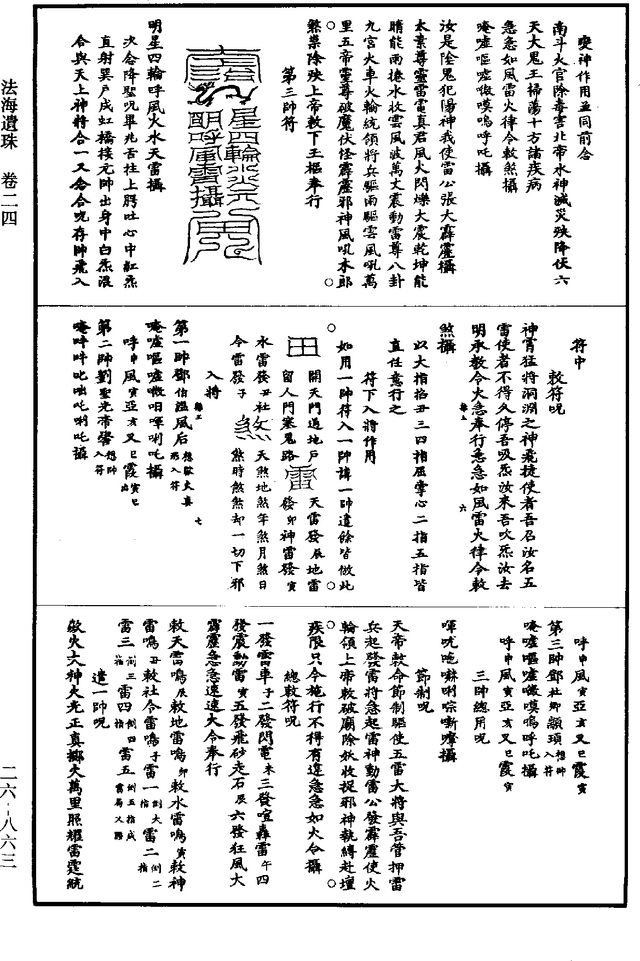 法海遺珠　卷二四
二六‧八六三
變神作用並同前念
南斗火官除毒害北帝水神滅災殃降伏六
天大鬼王掃蕩十方諸疾病
急急如風雷火律令敕煞攝
唵嘘嘔嘘㗲嘆嗚呼吒攝
汝是陰鬼犯陽神我使雷公張大霹靂攝
太素尊靈雷電真君風火閃爍大震乾坤能
晴能雨捲水收雲風波萬丈震動雷尊八卦
九宮火車火輪統領將兵驅雨驅雲風吼萬
里五帝靈尊破魔伏怪霹靂邪神風吼水郎
煞祟除殃上帝敕下王樞奉行
第三帥符
星四輪火水天
明呼風雷攝
明星四輪呼風火水天雷攝
次念降聖呪畢兆舌柱上腭吐心中紅炁
直射巽戶成虹橋接元帥出身中白炁滾
合與天上神將合一又念合呪存帥飛入
符中
敕符呪
神霄猛將洞淵之神飛捷使者吾召汝名五
雷使者不得久停吾吸炁汝來吾吹炁汝去
明承敕令火急奉行急急如風雷火律令敕
煞攝
以大指掐丑三四指屈掌心二指五指皆
直任意行之
符下入將作用
如用一帥符入一帥諱一帥遣餘皆倣此
田
開天門通地戶
留人門塞鬼路
雷
天雷發辰地雷
發卯神雷發寅
水雷發丑社
令雷發子
煞
天煞地煞年煞月煞日
煞時煞煞却一切下邪
入將
第一帥鄧伯溫風后
唵嘘嘔嘘㗲呬嘽唎吒攝
呼申風寅亞亥又巳霞寅巳出
第二帥劉聖光帝嚳想帥入符
唵吽吽叱咄吒唎吒攝
呼申風寅亞亥又巳霞寅
第三帥鄧杜卿顓頊想帥入符
唵嘘嘔嘘㗲嘆嗚呼吒攝
呼申風寅亞亥又巳霞寅
三帥總用呪
節制呪
天帝敕命節制驅使五雷大將與吾管押雷
兵起發雷將急起雷神動雷公發霹靂使火
輪領上帝敕破廟除妖收捉邪神執縛赴壇
疾限只今施行不得有違急急如火令攝
總敕符呪
一發雷車子二發閃電未三發喧轟雷午四
發震動雷寅五發飛砂走石辰六發狂風大
霹靂急急速速火令奉行
敕天雷鳴辰敕地雷鳴卯敕水雷鳴寅敕神
雷鳴丑敕社令雷鳴子雷一劄大指雷二倒二指
雷三倒三指雷四倒四指雷五
遣一帥呪
歘火大神火光正真擲火萬里照耀雷霆統